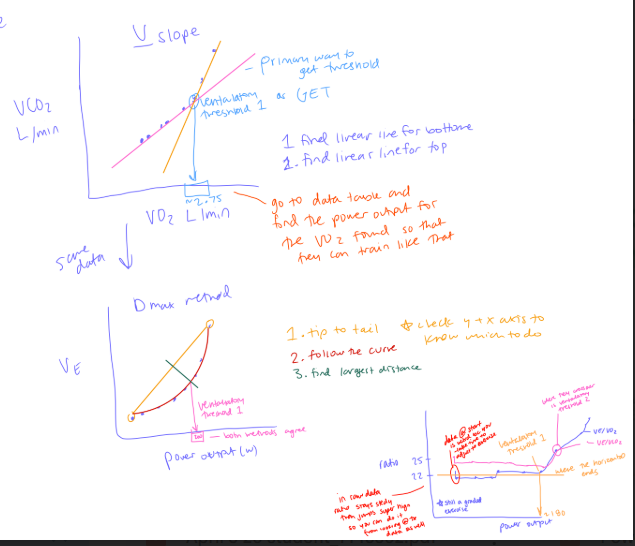 V slope
VCO2
L/min
Primary way to
get treshold
ventilatory
threshold 1 or GET
1 find linear line for bottom
2. find linear line for top
~2.75
VO2 L/min
go to data table and
find the power output for
the VO2 found so that
they can train like that
same
data
Dmax method
VE
1. tip to tail
* check y + x axis to
know which to do
2. follow the curve
3. find largest distance
ventilatory
threshold 1
both methods agree
power output (W)
ratio
25
22
data @ start
ventilatory
threshold 1
is ventilatory
threshold 2
VE/VO2
VE/VCO2
where the horizontal
ends
in raw data
ratio stays steady
then jumps super high
so you can do it
from looking @ the
data as well
* still a graded
exercise
~180
power output